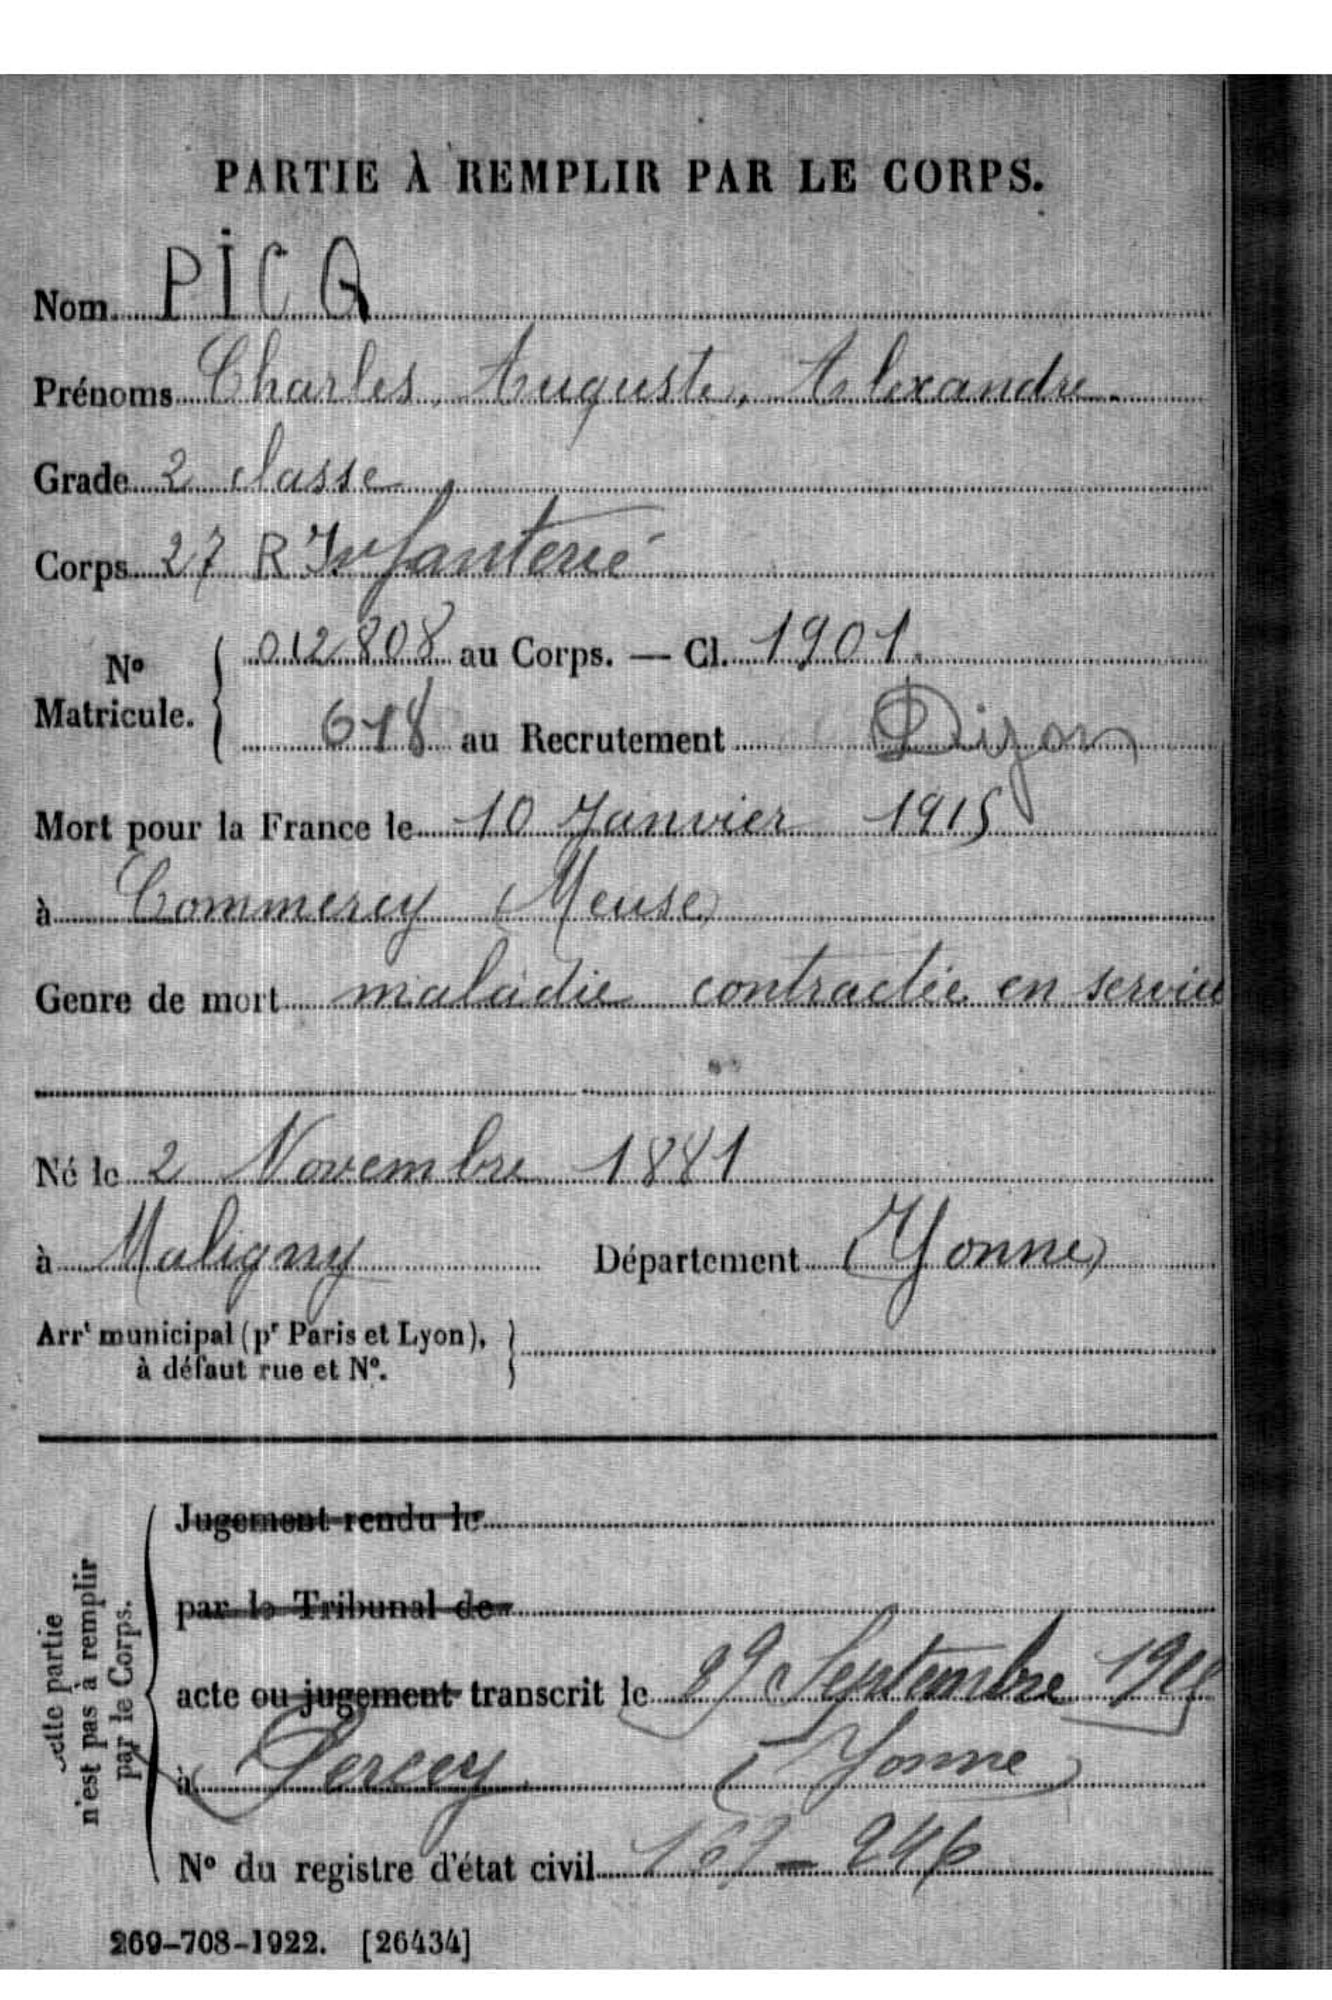 PARTIE À REMPLIR PAR LE CORPS.
Nom PICQ
Prénoms Charles, Auguste, Alexandre.
Grade 2 classe
Corps 27 R Infanterie
N° Matricule. { 012808 au Corps. — Cl. 1901.
618 au Recrutement Dijon
Mort pour la France le 10 Janvier 1915
à Commercy (Meuse)
Genre de mort maladie contractée en service
Né le 2 Novembre 1881
à Maligny Département (Yonne)
Arrt municipal (pr Paris et Lyon), }
à défaut rue et N°.
Cette partie
n'est pas à remplir
par le Corps.
Jugement rendu le
par le Tribunal de
acte ou jugement transcrit le Septembre
à Percey (Yonne)
N° du registre d'état civil 246
269-708-1922. [26434]